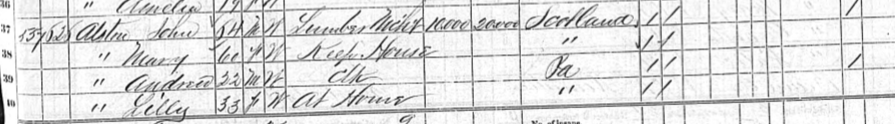 36 " Amelia 19 F W 1
37 537 525 Alston John 64 M W Lumber Mcht 10.000 20000 Scotland 1 1
38 " Mary 60 F W Keep House " 1 1
39 " Andrew 22 M W Clk Pa 1 1 1
40 " Lilly 33 F W At Home " 1 1